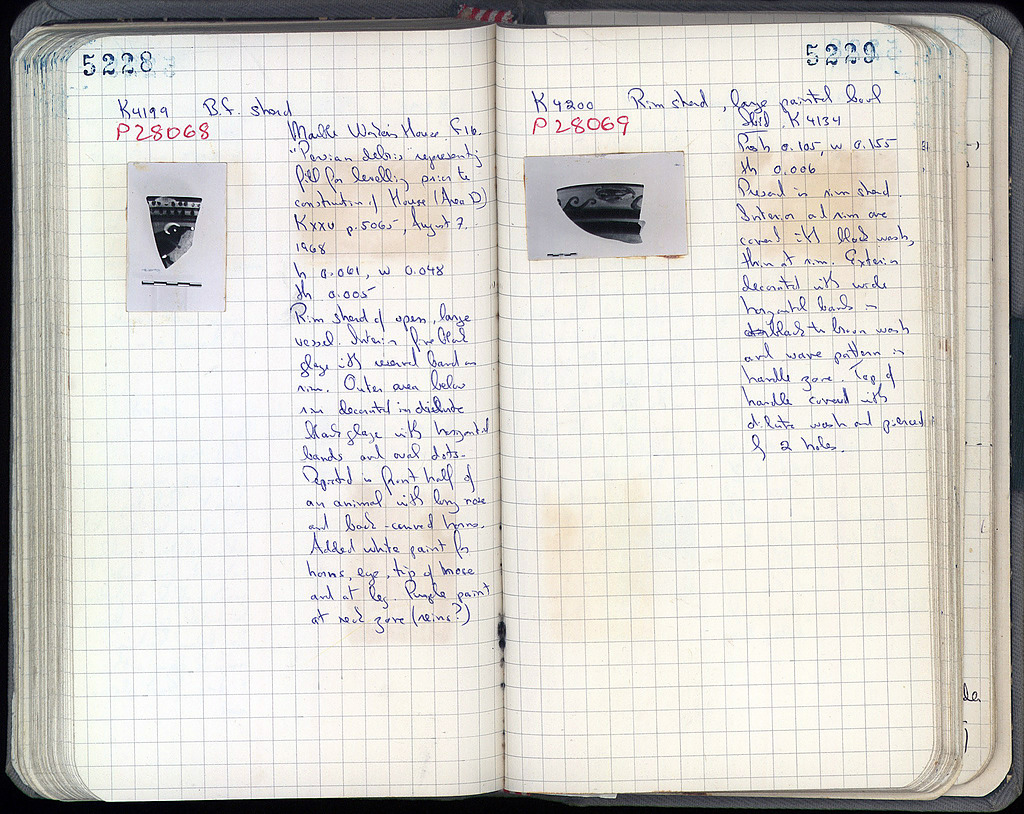 5228
K4199 B.f. sherd
P28068
Marble Worker's House F16.
"Persian debris" representing
fill for levelling prior to
construction of House (Area D)
K XXV p. 5065, August 7.
1968
h 0.061, w 0.048
th 0.005
Rim sherd of open, large
vessel. Interior fine black
glaze with reserved band on
rim. Outer area below
rim decorated in dilute
black glaze with horizontal
bands and oval dots.
Depicted is front half of
an animal with long nose
and back-curved horns.
Added white paint for
horns, eye, tip of nose
and at leg. Purple paint
at neck zone (reins?)
5229
K4200 Rim sherd, large painted bowl
P28069
Ibid. K4134
Pres h 0.105, w 0.155
th 0.006
Preserved is rim sherd.
Interior and rim are
covered with black wash,
thin at rim. Exterior
decorated with wide
horizontal bands in
black to brown wash
and wave pattern in
handle zone. Top of
handle covered with
dilute wash and pierced
by 2 holes.